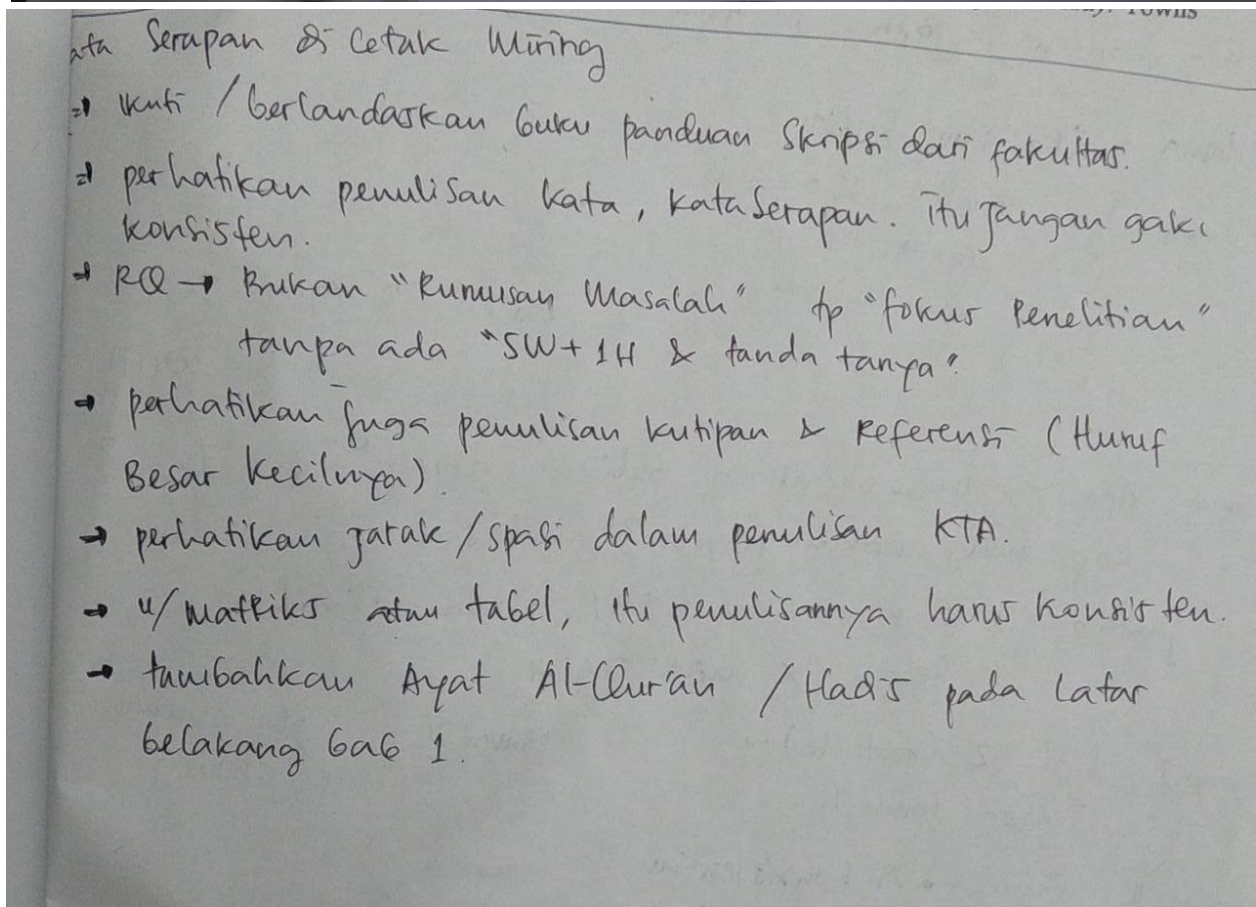 ata Serapan di Cetak Miring
⇒ ikuti / berlandaskan buku panduan Skripsi dari fakultas.
⇒ perhatikan penulisan kata, kata Serapan. itu Jangan gak
konsisten.
→ RQ → Bukan "Rumusan Masalah" tp "fokus Penelitian"
tanpa ada "5W + 1H & tanda tanya".
→ perhatikan juga penulisan kutipan & Referensi (Huruf
Besar kecilnya).
→ perhatikan jarak / spasi dalam penulisan KTA.
→ u/ matriks atau tabel, itu penulisannya harus konsisten.
→ tambahkan Ayat Al-Qur'an / Hadis pada Latar
belakang bab 1.